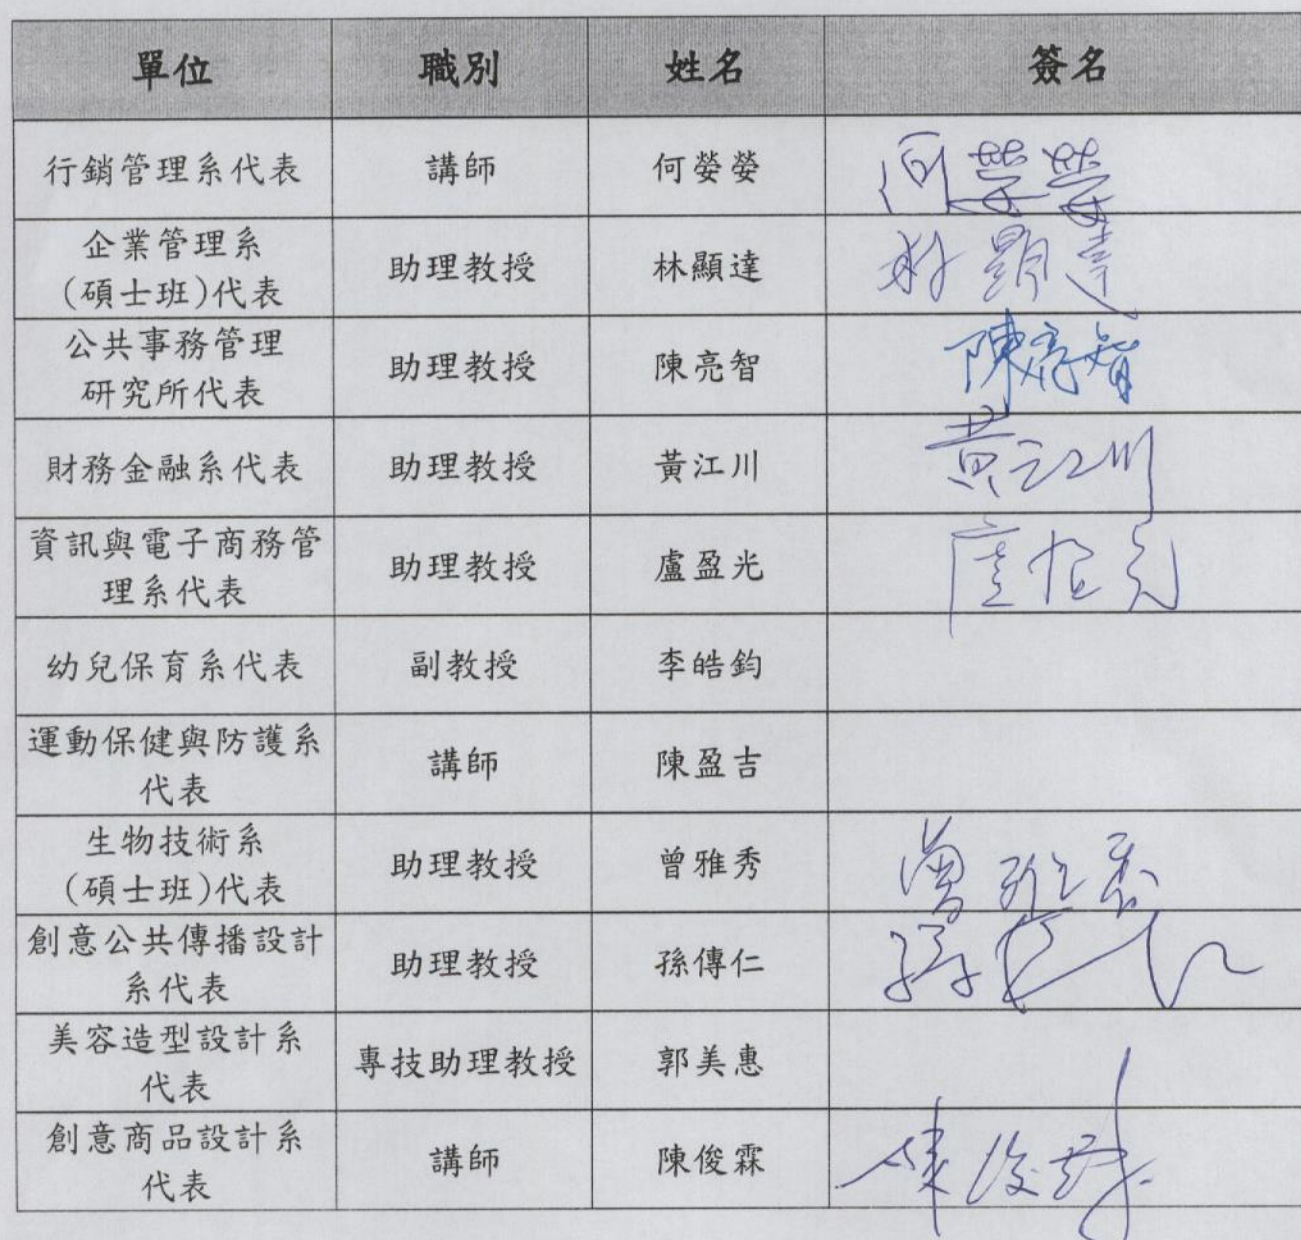 單位 職別 姓名 簽名
行銷管理系代表 講師 何嫈嫈 何嫈嫈
企業管理系
(碩士班)代表 助理教授 林顯達 林顯達
公共事務管理
研究所代表 助理教授 陳亮智 陳亮智
財務金融系代表 助理教授 黃江川 黃江川
資訊與電子商務管
理系代表 助理教授 盧盈光 盧盈光
幼兒保育系代表 副教授 李皓鈞
運動保健與防護系
代表 講師 陳盈吉
生物技術系
(碩士班)代表 助理教授 曾雅秀 曾雅秀
創意公共傳播設計
系代表 助理教授 孫傳仁 孫傳仁
美容造型設計系
代表 專技助理教授 郭美惠
創意商品設計系
代表 講師 陳俊霖 陳俊霖